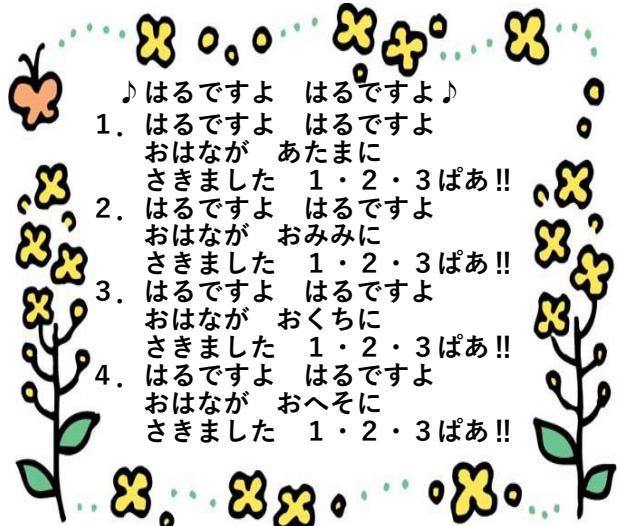 ♪はるですよ　はるですよ♪
１．はるですよ　はるですよ
おはなが　あたまに
さきました　１・２・３ぱあ‼
２．はるですよ　はるですよ
おはなが　おみみに
さきました　１・２・３ぱあ‼
３．はるですよ　はるですよ
おはなが　おくちに
さきました　１・２・３ぱあ‼
４．はるですよ　はるですよ
おはなが　おへそに
さきました　１・２・３ぱあ‼